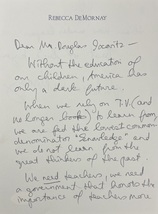 REBECCA DEMORNAY
Dear Mr. Douglas
Without the education of
our children, America has
only a dark future.
When we rely on T.V. (and
no longer books) to learn from
we are fed the lowest common
denominator "knowledge" and
we do not learn from the
great thinkers of the past.
We need teachers, we need
a government that honors the
importance of teachers more